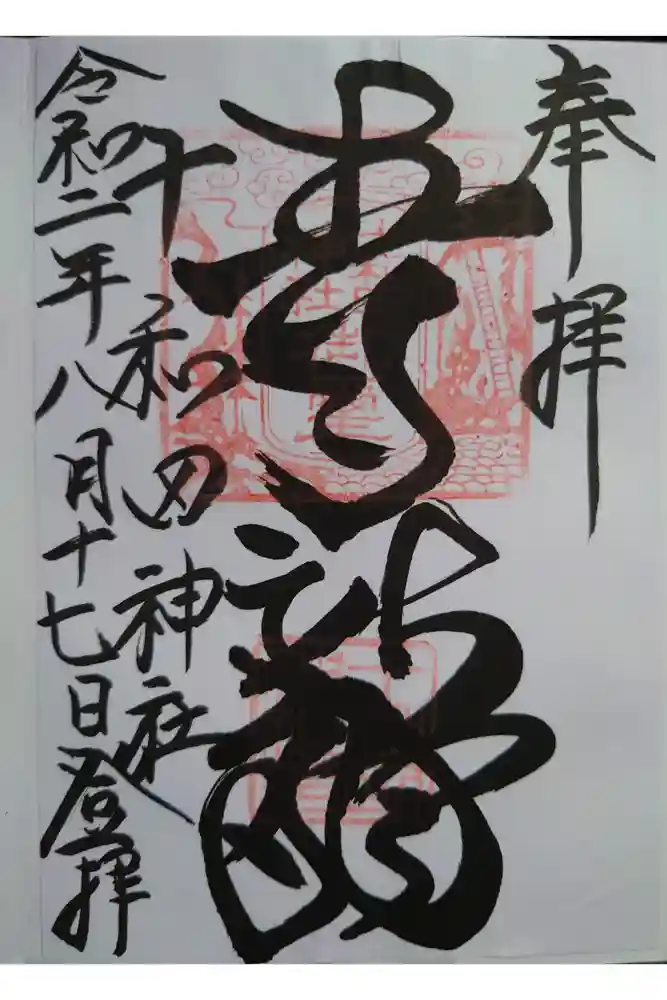 奉拝
青龍
十和田神社
令和二年八月十七日登拝